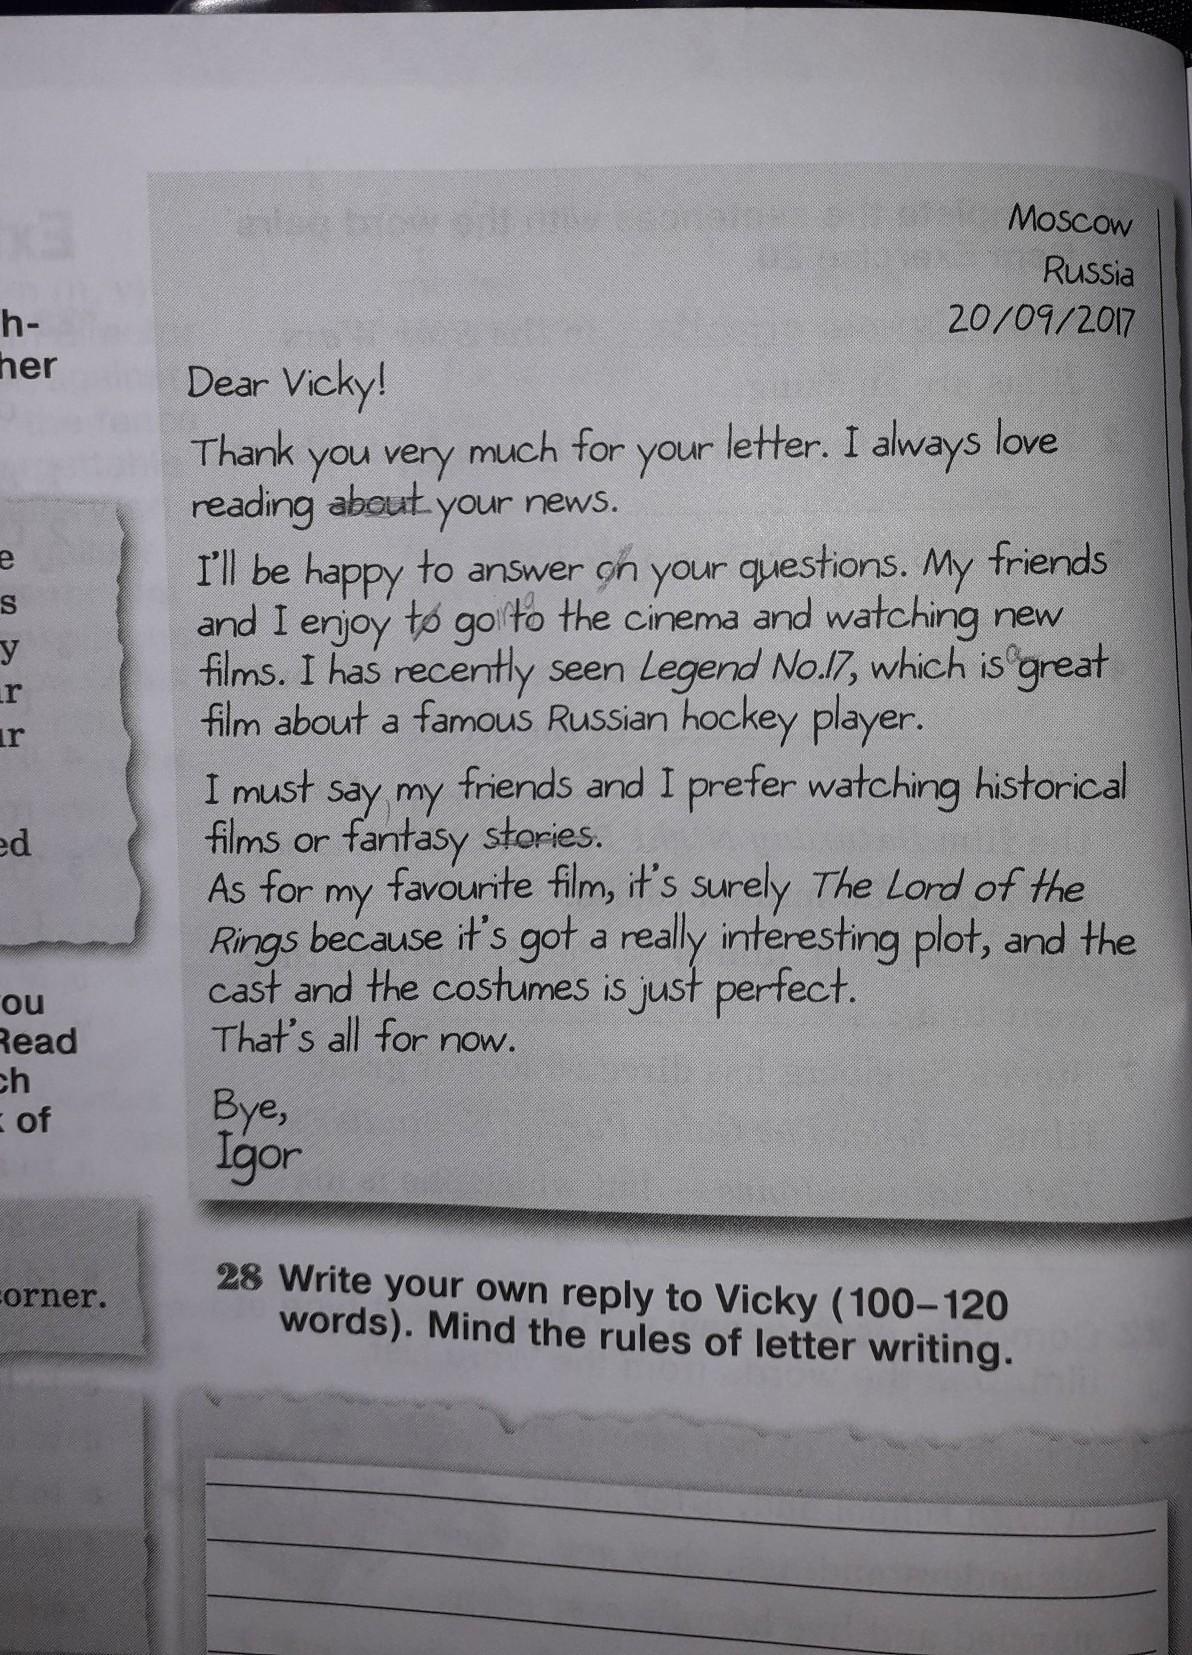 h-
her
e
s
y
ar
ur
ed
ou
Read
ch
of
corner.
Moscow
Russia
20/09/2017
Dear Vicky!
Thank you very much for your letter. I always love
reading about your news.
I'll be happy to answer on your questions. My friends
and I enjoy to go to the cinema and watching new
films. I has recently seen Legend No.17, which is a great
film about a famous Russian hockey player.
I must say, my friends and I prefer watching historical
films or fantasy stories.
As for my favourite film, it's surely The Lord of the
Rings because it's got a really interesting plot, and the
cast and the costumes is just perfect.
That's all for now.
Bye,
Igor
28 Write your own reply to Vicky (100–120
words). Mind the rules of letter writing.